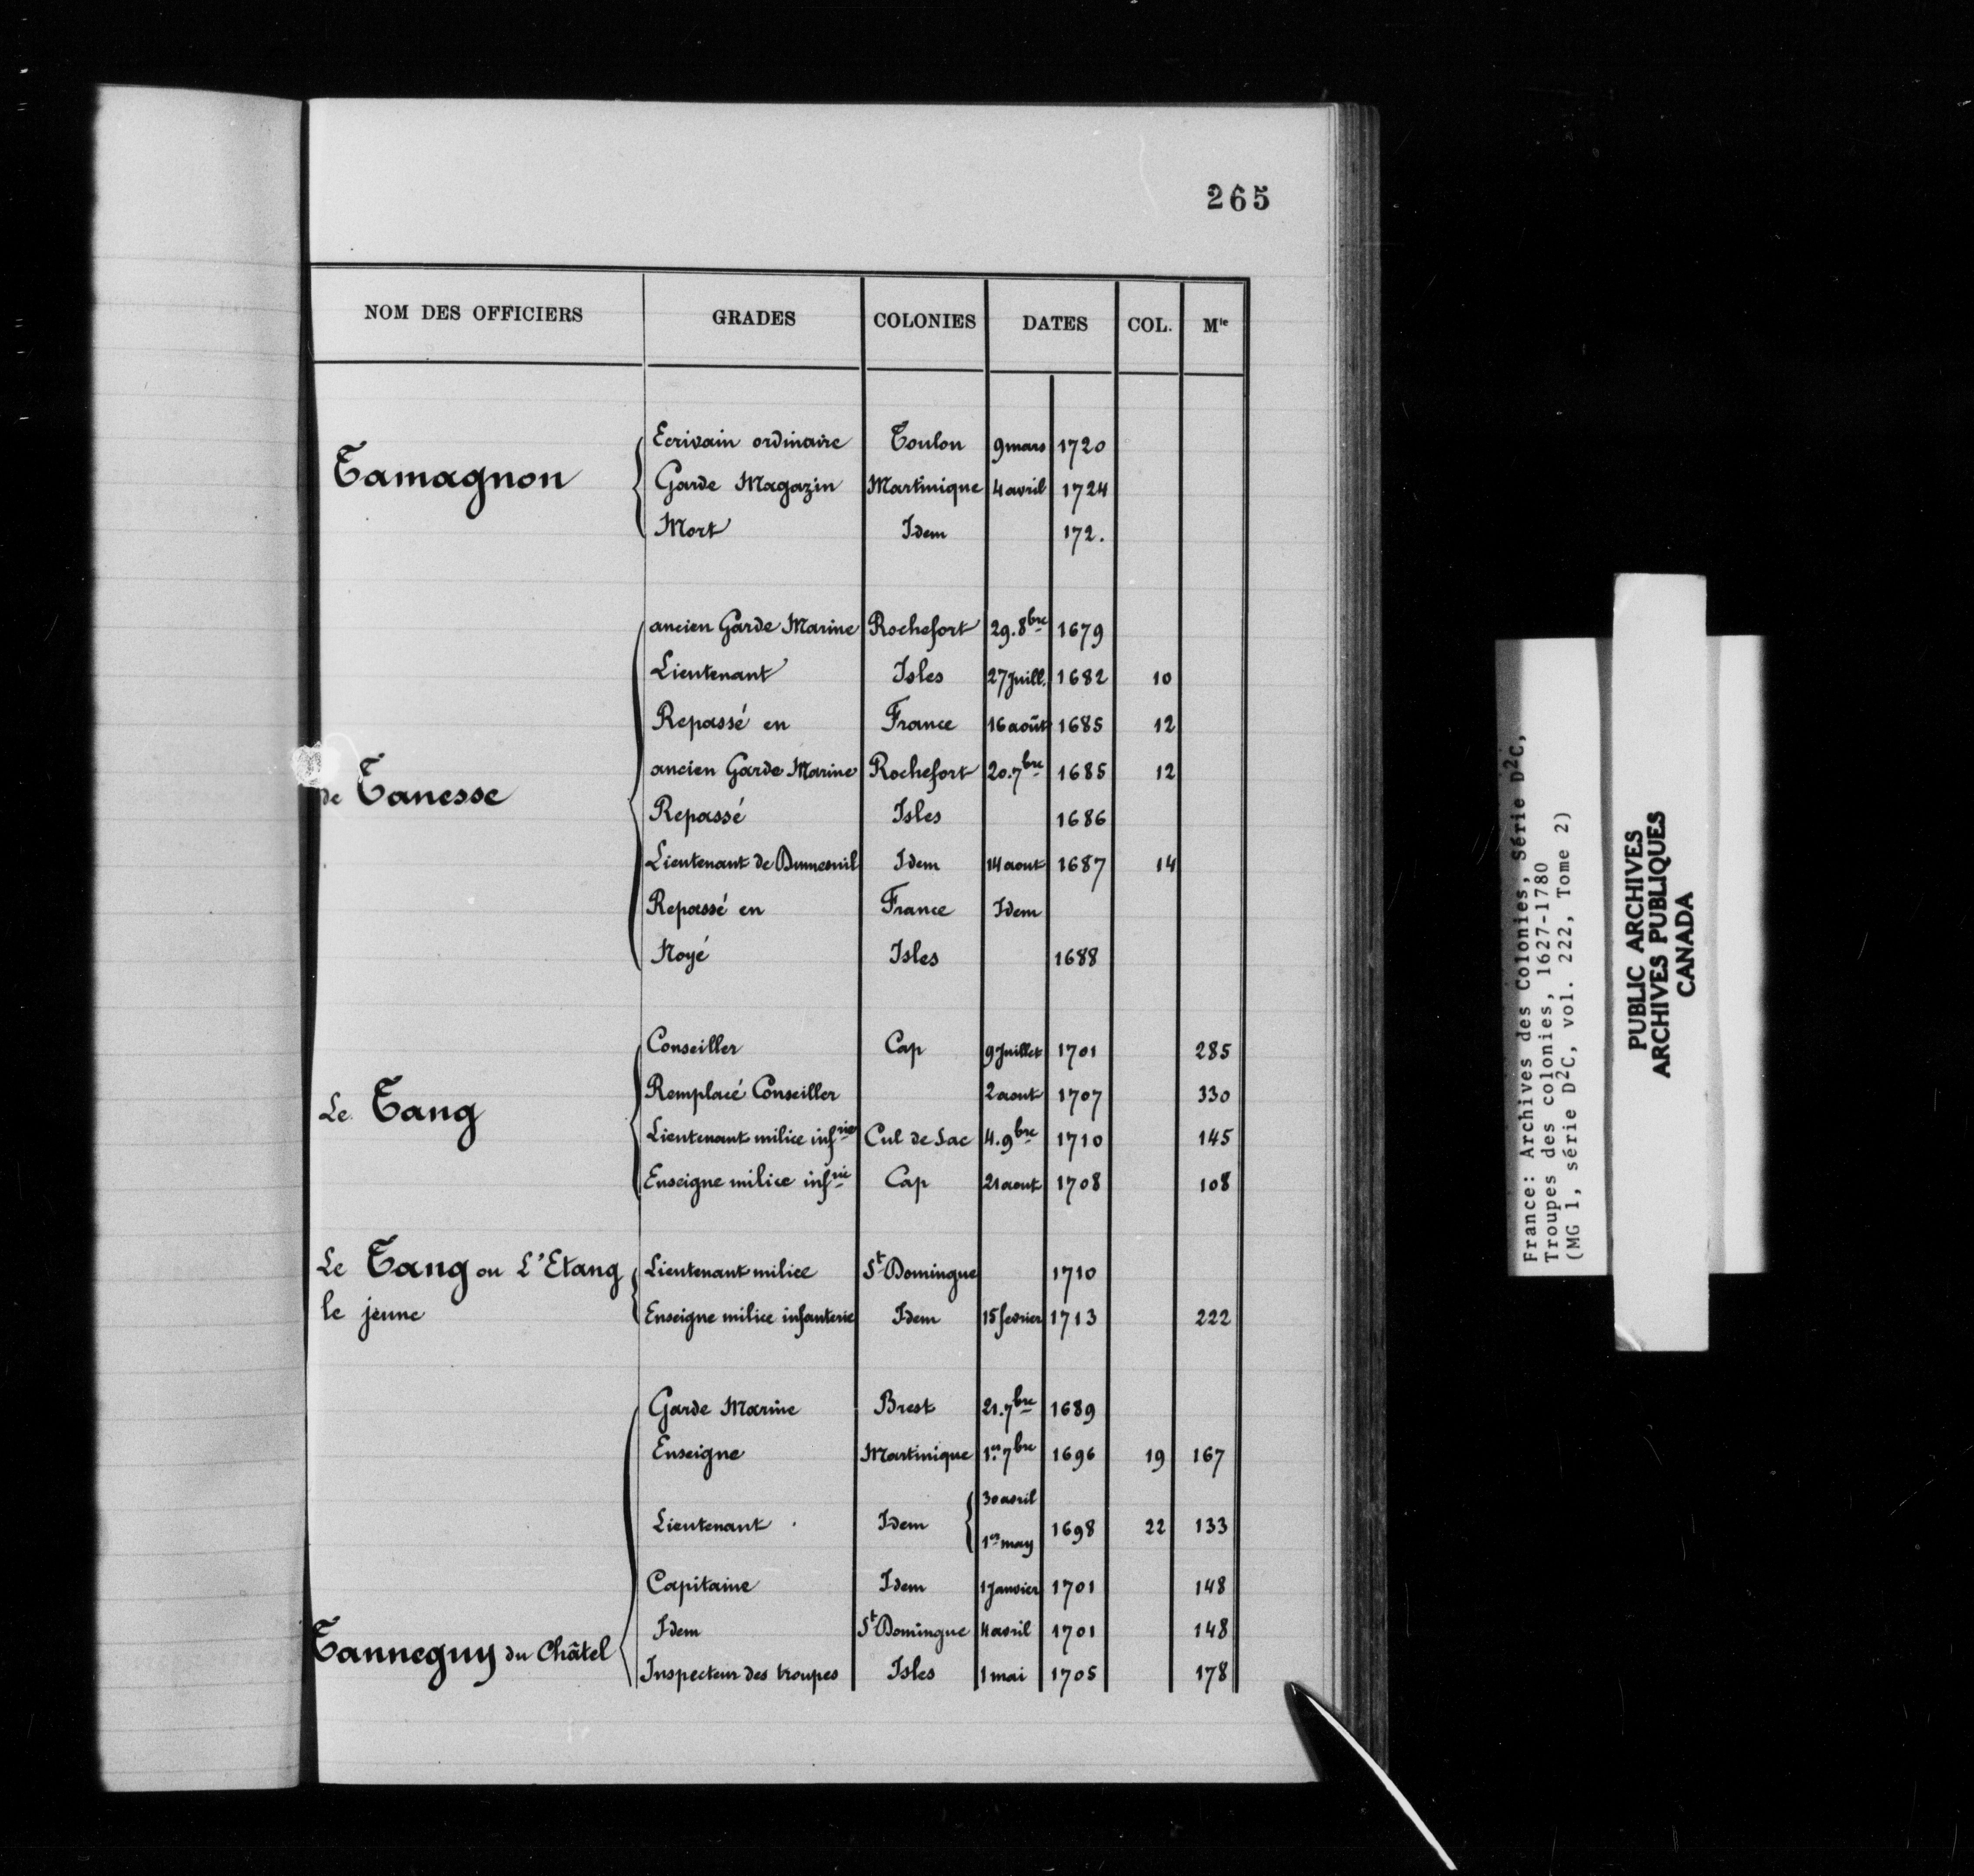 265
NOM DES OFFICIERS GRADES COLONIES DATES COL. Mle
Tamagnon
Ecrivain ordinaire Toulon 9 mars 1720
Garde Magazin Martinique 4 avril 1724
Mort Idem 172.
de Tanesse
ancien Garde Marine Rochefort 29. 8bre 1679
Lieutenant Isles 27 Juill. 1682 10
Repassé en France 16 août 1685 12
ancien Garde Marine Rochefort 20. 7bre 1685 12
Repassé Isles 1686
Lieutenant de Dumesnil Idem 14 aout 1687 14
Repassé en France Idem
Noyé Isles 1688
Le Tang
Conseiller Cap 9 Juillet 1701 285
Remplacé Conseiller 2 aout 1707 330
Lieutenant milice infrie Cul de Sac 4. 9bre 1710 145
Enseigne milice infrie Cap 21 aout 1708 108
Le Tang ou L'Etang
le jeune
Lieutenant milice St Domingue 1710
Enseigne milice infanterie Idem 15 fevrier 1713 222
Tanneguy du Châtel
Garde Marine Brest 21. 7bre 1689
Enseigne Martinique 1er 7bre 1696 19 167
Lieutenant Idem 30 avril 1er may 1698 22 133
Capitaine Idem 1 Janvier 1701 148
Idem St Domingue 4 avril 1701 148
Inspecteur des troupes Isles 1 mai 1705 178
France: Archives des Colonies, Série D2C,
Troupes des colonies, 1627-1780
(MG 1, série D2C, vol. 222, Tome 2)
PUBLIC ARCHIVES
ARCHIVES PUBLIQUES
CANADA